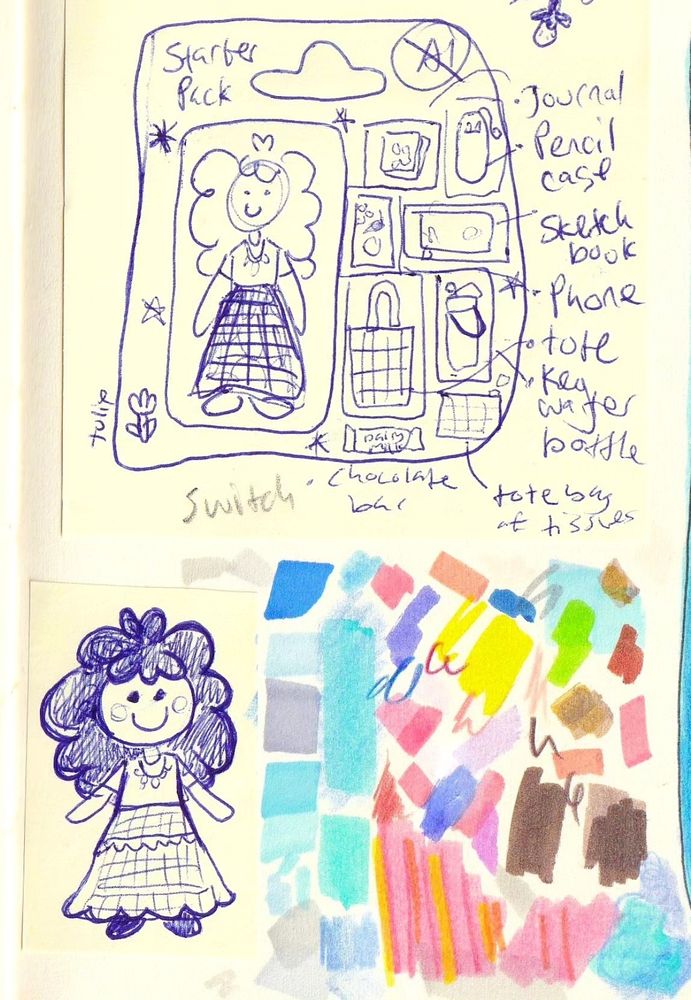 Starter
Pack
AI
Journal
Pencil
case
Sketch
book
Phone
tote
Key
water
bottle
tulip
Dairy
Milk
Switch
Chocolate
bar
tote bag
of tissues